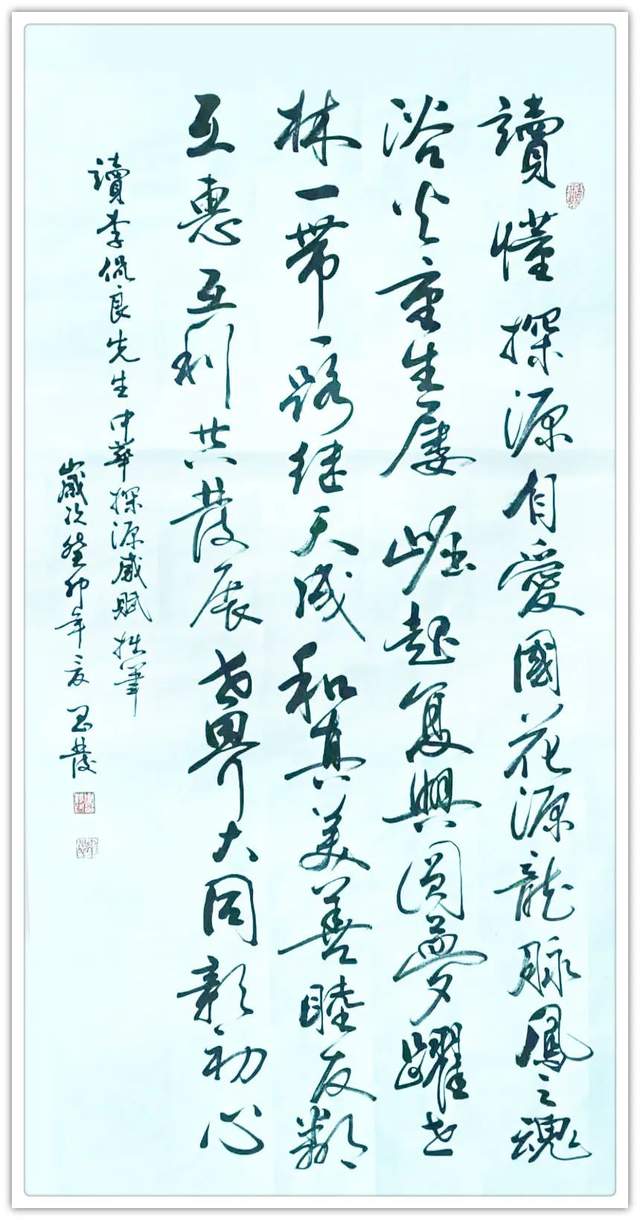 讀懂探源自愛國花源龍脉鳳之魂
浴火重生屢崛起复興圓夢躍世
林一帶一路继天成和真美善睦友鄰
互惠互利共發展世界大同彰初心
讀李侃良先生中華探源感賦拙筆
歲次癸卯年夏發